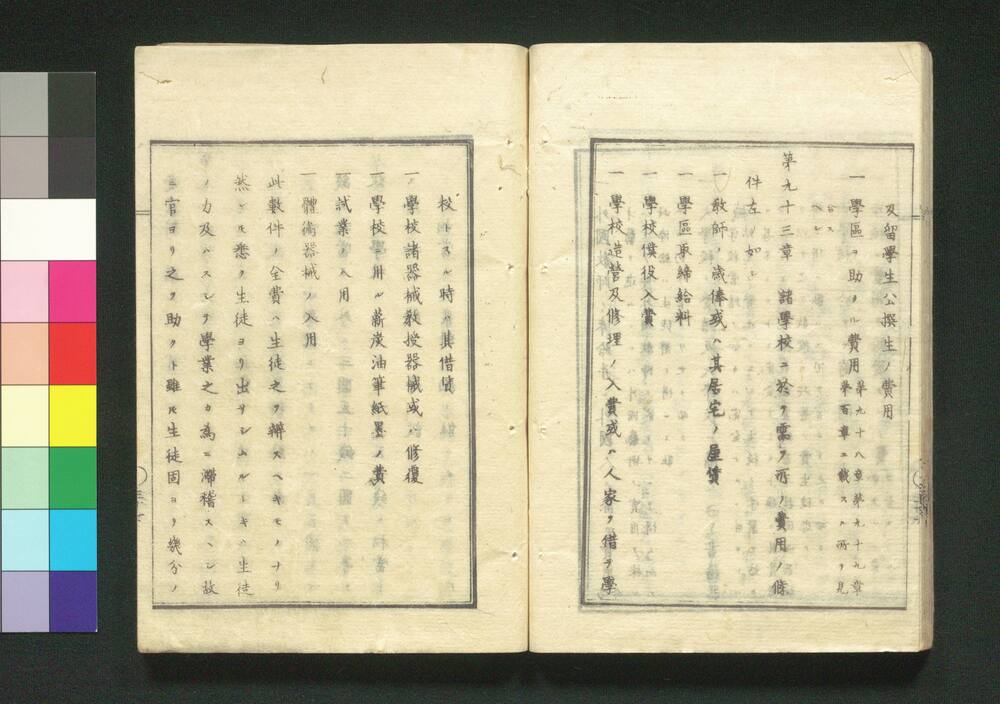 及留學生公撰生ノ費用
一 學區ヲ助クル費用 第九十八章第九十九章
第百章ニ載スル所ヲ見
合スヘシ
第九十三章 諸學校ニ於テ需ク所ノ費用ノ條
件左ノ如シ
一 敎師ノ歳俸或ハ其居宅ノ屋賃
一 學區取締給料
一 學校僕役入費
一 學校造營及修理ノ入費或ハ人家ヲ借テ學
校トスル時ハ其借賃
一 學校諸器械敎授器械或ハ修復
一 學校ニ用ル薪炭油筆紙墨ノ費
一 試業ノ入用
一 體術器械ノ入用
此數件ノ全費ハ生徒之ヲ辨スヘキモノナリ
然レ𪜈悉ク生徒ヨリ出サシムルトキハ生徒
ノ力及ハスシテ學業之カ爲ニ滯稽スヘシ故
ニ官ヨリ之ヲ助クト雖𪜈生徒固ヨリ幾分ノ